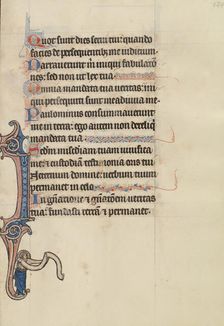 Quot sunt dies serui tui: quando
facies de persequentib; me iudicium
Narrauerunt michi iniqui fabulatio
nes: sed non ut lex tua
Omnia mandata tua ueritas: ini
qui persequuti sunt me adiuua me
Paulominus consummauerunt
me in terra: ego autem non dereliqui
mandata tua
Secundum misericordiam tuam uiuifica
me: & custodiam testimonia oris tui
In eternum domine: uerbum tuum
permanet in celo
In generatione & generationem ueritas
tua: fundasti terram & permanet